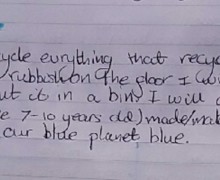 ycle everything that recyc
/rubbish on the floor I wi
ut it in a bin, I will
e 7-10 years old) made/mak
our blue planet blue.